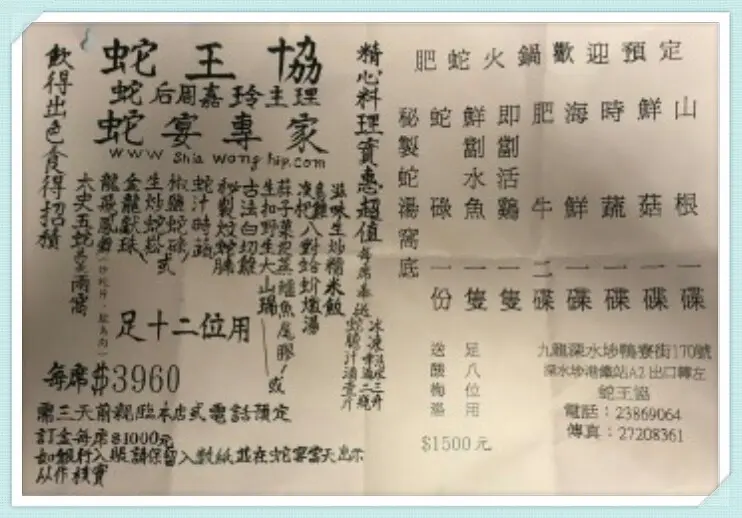 蛇王協
蛇后周嘉玲主理
蛇宴專家
www.shiawonghip.com
精心料理實惠超值
飲得出色食得招積
每席奉送
滋味生炒糯米飯
淮杞八對蛤蚧燉湯
生扣野生大山瑞
古法白切雞
秘製炆蛇腩
蛇汁時蔬
椒鹽蛇碌/或
生炒蛇崧
金龍獻珠
龍飛鳳舞
太史五蛇羹兩窩
足十二位用
每席$3960
需三天前親臨本店或電話預定
訂金每席$1000元
如銀行入賬請保留入數紙並在蛇宴當天出示
以作核實
肥蛇火鍋歡迎預定
山根一碟
鮮菇一碟
時蔬一碟
海鮮一碟
肥牛二碟
即劏活鷄一隻
鮮劏水魚一隻
蛇碌一份
秘製蛇湯窩底
足八位用
送酸梅
$1500元
九龍深水埗鴨寮街170號
深水埗港鐵站A2出口轉左
蛇王協
電話：23869064
傳真：27208361